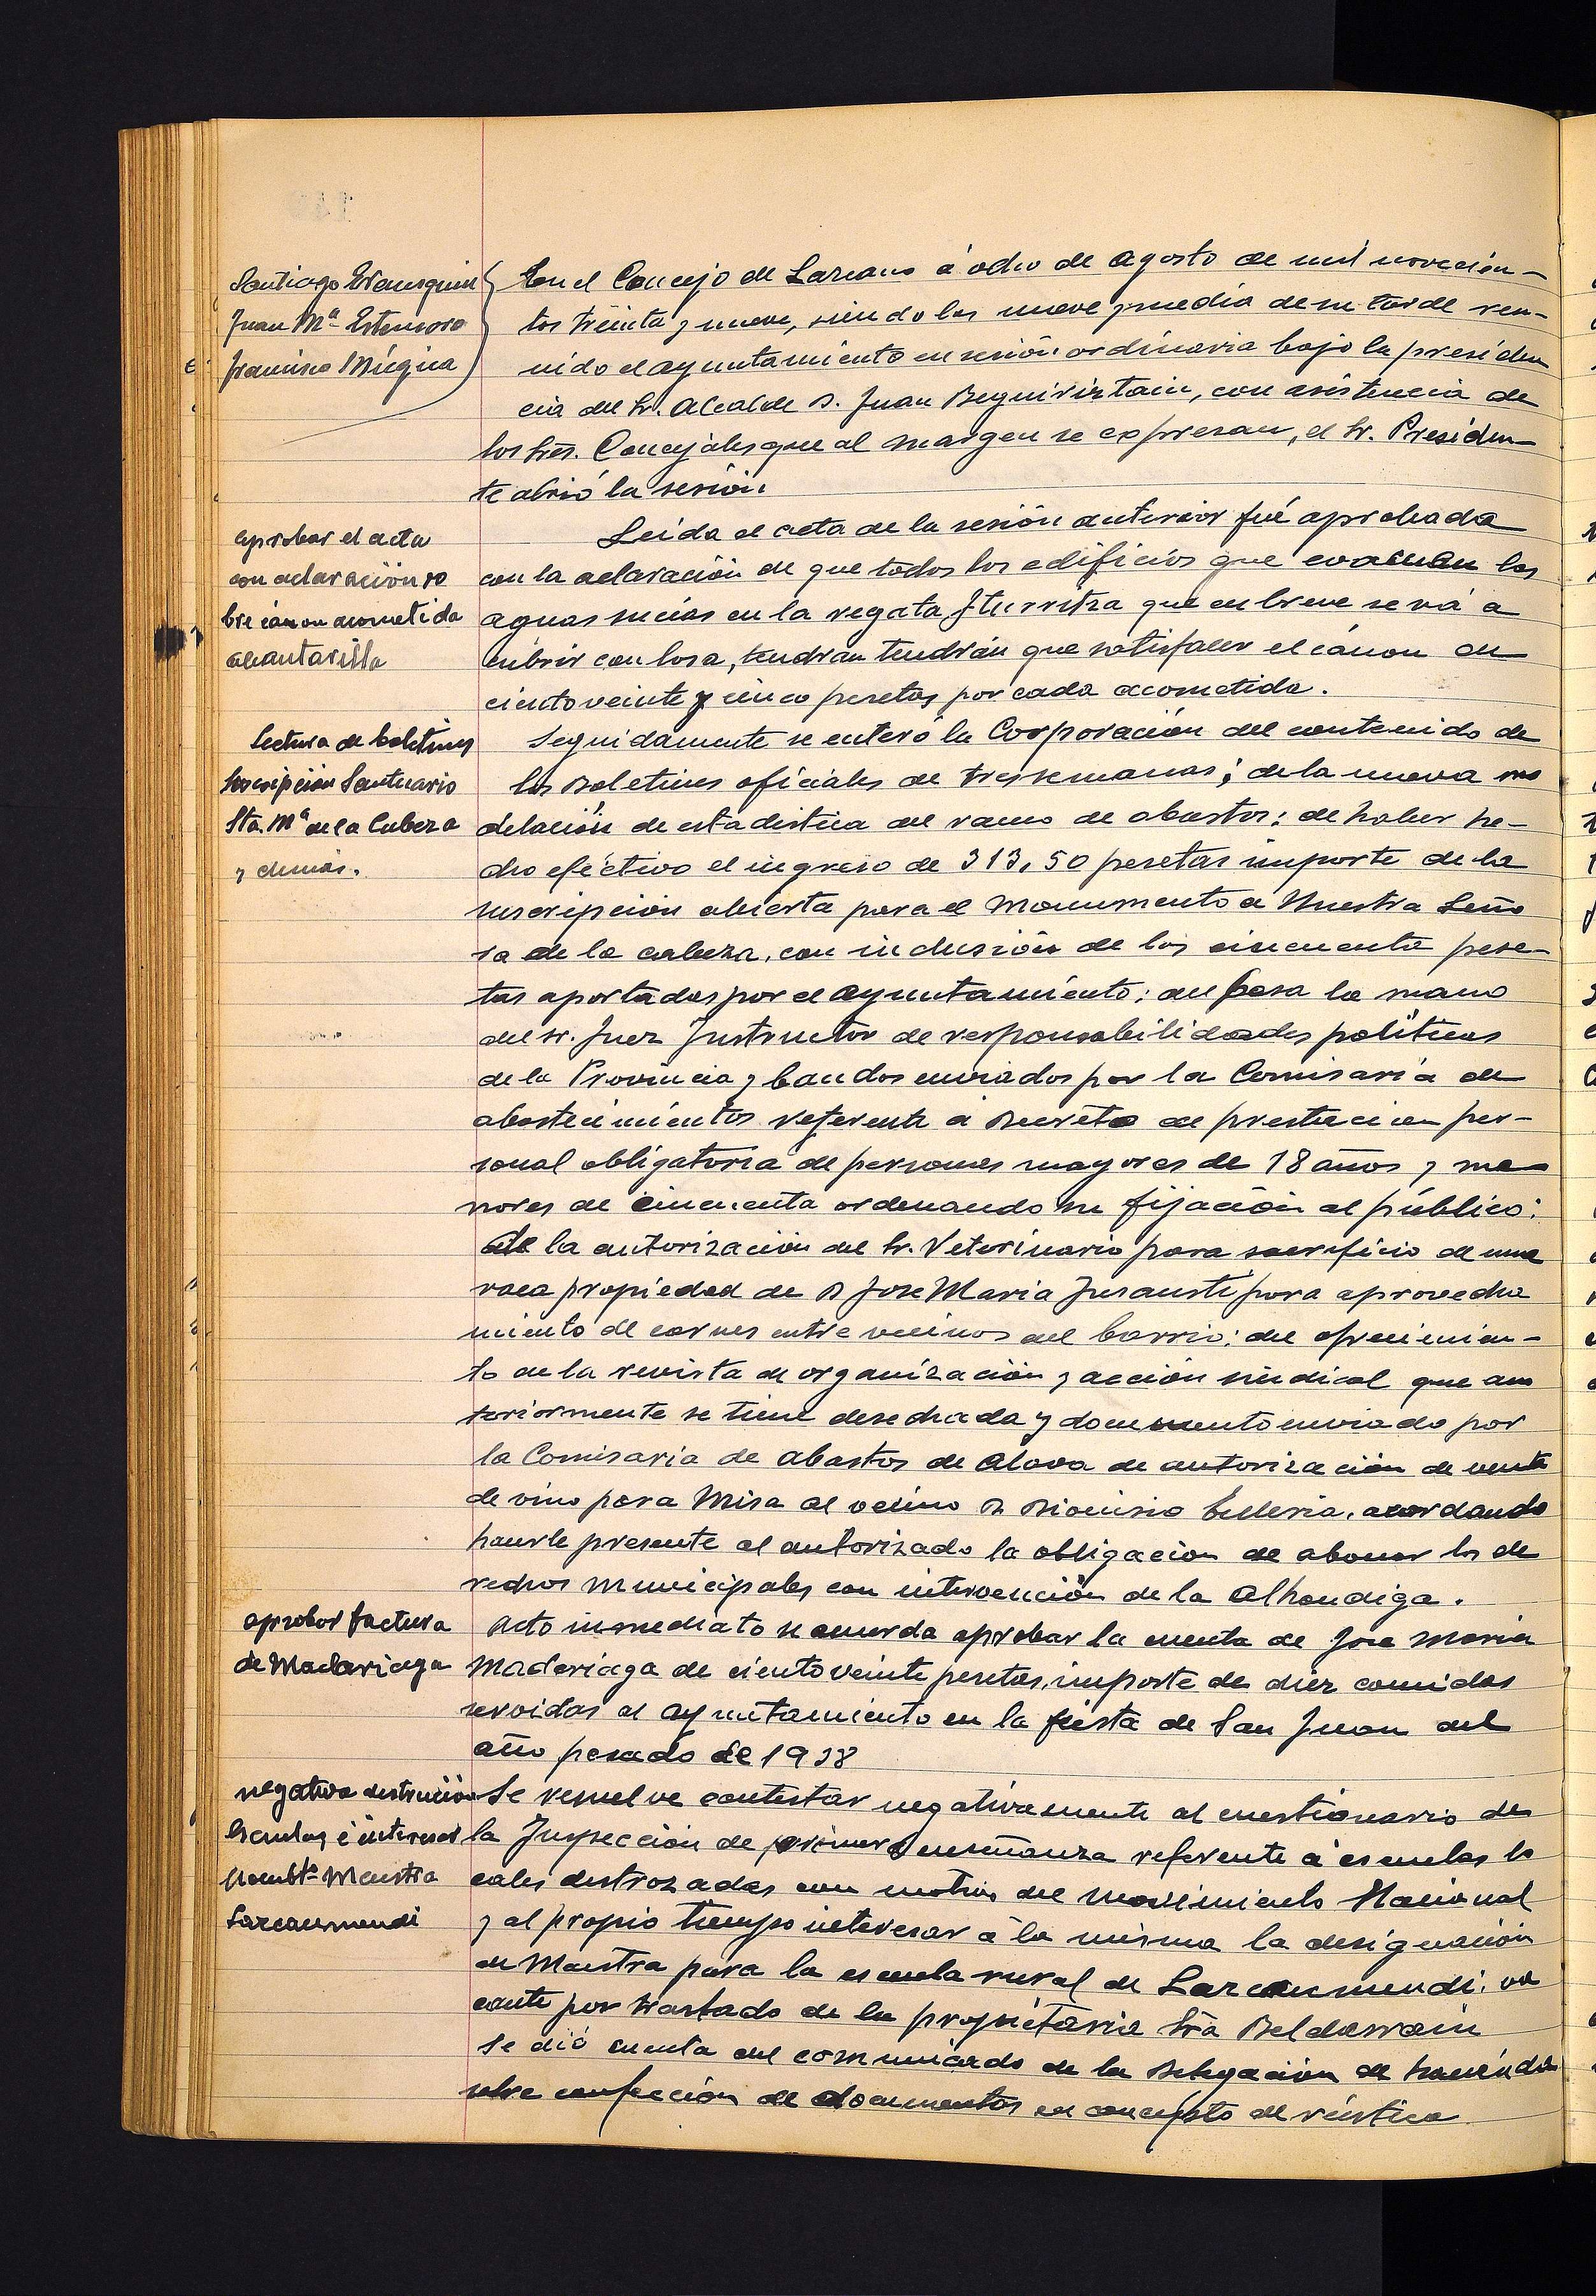 Santiago
Juan Mª Estensoro
Francisco Múgica
En el Concejo de Lazcano á ocho de Agosto de mil novecien-
tos treinta y nueve, siendo las nueve y media de su tarde reu-
nido el ayuntamiento en sesión ordinaria bajo la presiden
cia del Sr. Alcalde D. Juan Beguiristain, con asistencia de
los Sres. Concejales que al margen se expresan, el Sr. Presiden-
te abrió la sesión.
aprobar el acta
con aclaración so
bre canon acometida
alcantarilla
Leida el acta de la sesión anterior fué aprobada
con la aclaración de que todos los edificios que evacuan las
aguas sucias en la regata Iturritza que en breve se vá a
cubrir con losa, tendran tendrán que satisfacer el cánon de
ciento veinte y cinco pesetas por cada acometida.
Lectura de boletines
Suscripción Santuario
Sta. Mª de la Cabeza
y demás.
Seguidamente se enteró la Corporación del contenido de
los Boletines oficiales de tres semanas; de la nueva mo
delación de estadistica del ramo de abastos: de haber he-
cho eféctivo el ingreso de 313,50 pesetas importe de la
suscripción abierta para el Monumento a Nuestra Seño
ra de la cabeza, con inclusión de las cincuenta pese-
tas aportadas por el Ayuntamiento; del besa la mano
del Sr. Juez Instructor de responsabilidades politicas
de la Provincia y bandos enviados por la Comisaría de
abastecimientos referente a Decreto de prestacion per-
sonal obligatoria de personas mayores de 18 años y me-
nores de cincuenta ordenando su fijación al público:
de la autorización del Sr. Veterinario para sacrificio de una
vaca propiedad de D Jose Maria Insausti para aprovecha
miento de carnes entre vecinos del barrio: del ofrecimien-
to de la revista de organización y acción sindical que an
teriormente se tiene desechada y documento enviado por
la Comisaria de Abastos de Alava de autorización de venta
de vino para Misa al vecino D Dionisio Telleria, acordando
hacerle presente al autorizado la obligacion de abonar los de
rechos Municipales con intervención de la Alhondiga.
aprobar factura
de Madariaga
Acto inmediato se acuerda aprobar la cuenta de Jose Maria
Madariaga de ciento veinte pesetas, importe de diez comidas
servidas al Ayuntamiento en la fiesta de San Juan del
año pasado de 1938
negativa destrucción
Escuelas é interesar
Nombtº Maestra
Lazcaumendi
Se resuelve contestar negativamente al cuestionario de
la Inspección de primera enseñanza referente á escuelas lo
cales destrozadas con motivo del movimiento Nacional
y al propio tiempo interesar á la misma la designación
de Maestra para la escuela rural de Lazcaumendi, va
cante por traslado de la propietaria Srà Beldarrain
Se dió cuenta del comunicado de la Delegación de hacienda
sobre confección de documentos en concepto de rústica